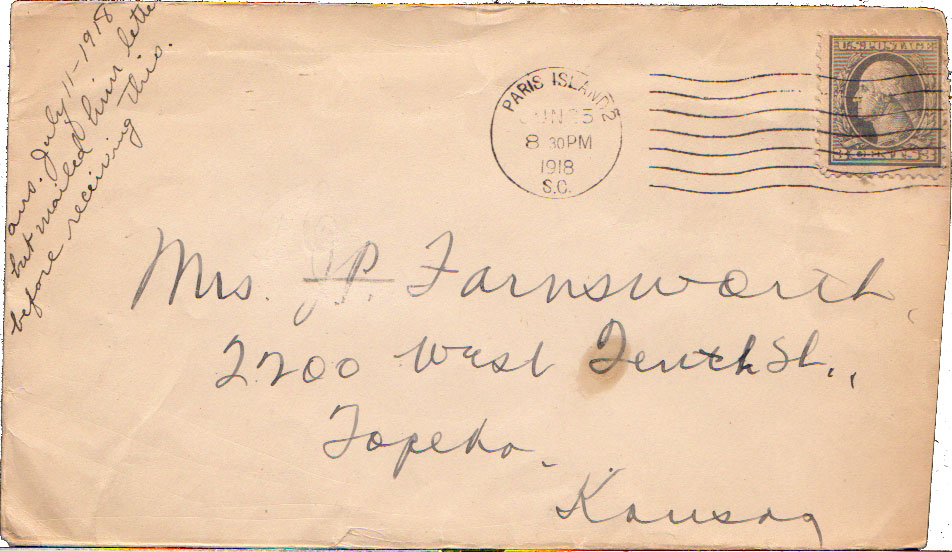 ans. July 11-1918
but mailed him letter
before receiving this.
PARIS ISLAND
JUN 25
8 30PM
1918
S.C.
Mrs. J.P. Farnsworth
2200 West Tenth St.,
Topeka.
Kansas